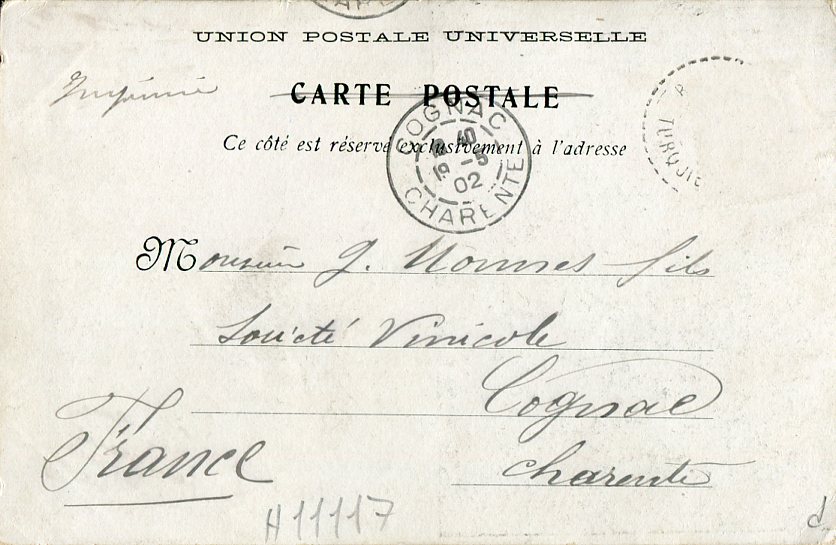 UNION POSTALE UNIVERSELLE
Imprimé
CARTE POSTALE
Ce côté est réservé exclusivement à l'adresse
COGNAC
40
19 -5
02
CHARENTE
TURQUIE
Monsieur J. Monnet fils
Société Vinicole
Cognac
Charente
France
H11117